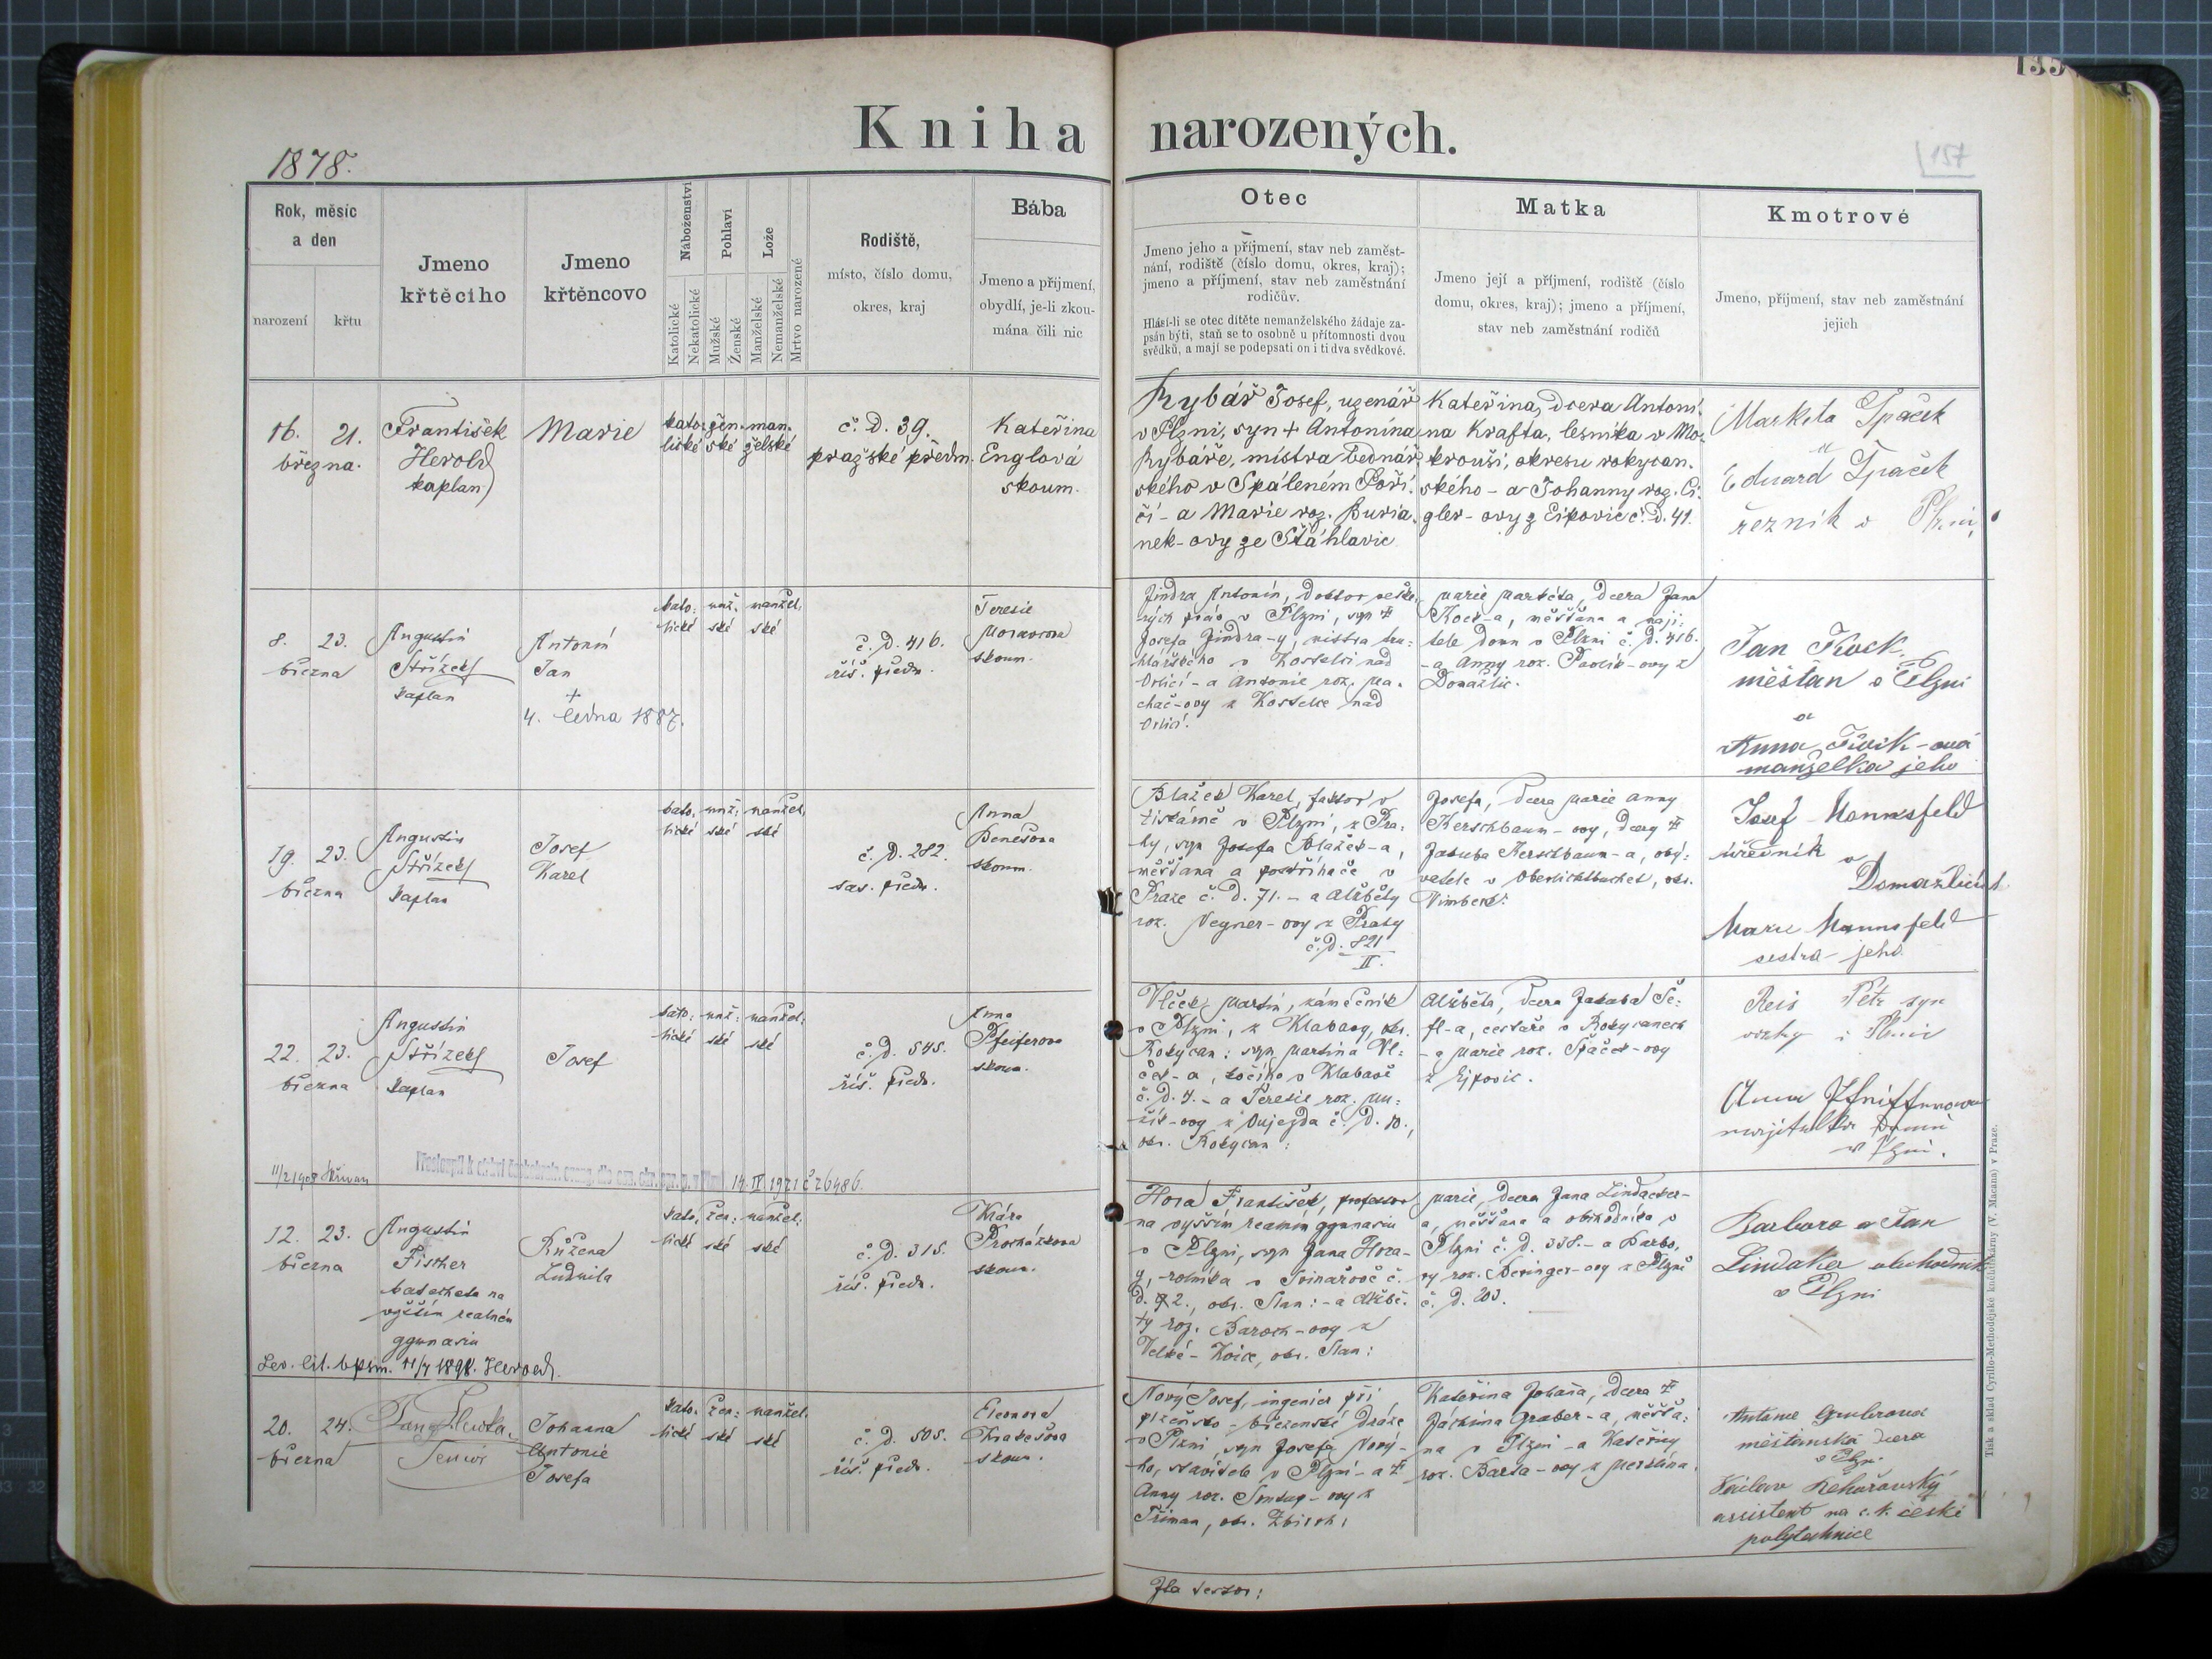 Kniha narozených.
1878.
157
Rok, měsíc
a den
narození
křtu
Jmeno
křtěcího
Jmeno
křtěncovo
Náboženství
Katolické
Nekatolické
Pohlaví
Mužské
Ženské
Lože
Manželské
Nemanželské
Mrtvo narozené
Rodiště,
místo, číslo domu,
okres, kraj
Bába
Jmeno a příjmení,
obydlí, je-li zkou-
mána čili nic
Otec
Jmeno jeho a příjmení, stav neb zaměst-
nání, rodiště (číslo domu, okres, kraj);
jmeno a příjmení, stav neb zaměstnání
rodičův.
Hlásí-li se otec dítěte nemanželského žádaje za-
psán býti, staň se to osobně u přítomnosti dvou
svědků, a mají se podepsati on i ti dva svědkové.
Matka
Jmeno její a příjmení, rodiště (číslo
domu, okres, kraj); jmeno a příjmení,
stav neb zaměstnání rodičů
Kmotrové
Jmeno, příjmení, stav neb zaměstnání
jejich
16. 21.
března.
František
Herold
kaplan
Marie
kato-
lické
žen-
ské
man-
želské
č. d. 39.
pražské předm.
Kateřina
Englová
skoum.
Rybář Josef, uzenář
v Plzni, syn + Antonína
Rybáře, mistra bednář-
ského v Spáleném Poří-
čí - a Marie roz. Buria-
nek-ovy ze Šťáhlavic
Kateřina, dcera Antoní-
na Krafta, lesníka v Mo-
krouši, okresu rokycan-
ského - a Johanny roz. Ci-
gler-ovy z Eipovic č. d. 41.
Markéta Špaček
a
Eduard Špaček
řezník v Plzni,
8. 23.
března
Augustin
Střízek
kaplan
Antonín
Jan
+
4. ledna 1887.
kato-
lické
muž-
ské
manžel-
ské
č. d. 416.
říš. předm.
Terezie
Moravcova
skoum.
Jindra Antonín, doktor veške-
rých práv v Plzni, syn +
Josefa Jindra-y, mistra tru-
hlářského v Kostelci nad
Orlicí - a Antonie roz. Ma-
chač-ovy z Kostelce nad
Orlicí.
Marie Markéta, dcera Jana
Kock-a, měšťana a maji-
tele domu v Plzni č. d. 416.
- a Anny roz. Pavlík-ovy z
Domažlic.
Jan Kock,
měšťan v Plzni
a
Anna Kock-ová
manželka jeho
19. 23.
března
Augustin
Střízek
kaplan
Josef
Karel
kato-
lické
muž-
ské
manžel-
ské
č. d. 282.
sas. předm.
Anna
Benešova
skoum.
Blažek Karel, faktor v
tiskárně v Plzni, z Pra-
hy, syn Josefa Blažek-a,
měšťana a postřihače v
Praze č. d. 71. - a Alžběty
roz. Vegner-ovy z Prahy
č. d. 821
II.
Josefa, dcera Marie Anny
Kerschbaum-ovy, dcery +
Jakuba Kerschbaum-a, oby-
vatele v Oberlichtbuchet, okr.
Vimberk.
Josef Mannsfeld
úředník
v
Domažlicích
Marie Mannsfeld
sestra jeho
22. 23.
března
Augustin
Střízek
kaplan
Josef
kato-
lické
muž-
ské
manžel-
ské
č. d. 545.
říš. předm.
Anna
Pfeiferova
skoum.
Vlček Martin, zámečník
v Plzni, z Klabavy, okr.
Rokycan: syn Martina Vl-
ček-a, kočího v Klabavě
č. d. 7. - a Terezie roz. Mu-
žík-ovy z Oujezda č. d. 10.,
okr. Rokycan:
Alžběta, dcera Jakuba Še-
fl-a, cestáře v Rokycanech
- a Marie roz. Špaček-ovy
z Ejpovic.
Reis Petr syn
v Plzni
Anna Pfeifferova
majitelka domu
v Plzni.
14. IV 1921 č 26486.
12. 23.
března
Augustin
Fischer
katecheta na
vyšším reálném
gymnasiu
Růžena
Ludmila
kato-
lické
žen-
ské
manžel-
ské
č. d. 315.
říš. předm.
Klára
Procházkova
skoum.
Hora František, professor
na vyšším reálním gymnasiu
v Plzni, syn Jana Hora-
y, rolníka v Svinařově č.
d. 72., okr. Slan: - a Alžbě-
ty roz. Baroch-ovy z
Velké-, okr. Slan:
Marie, dcera Jana Lindacker-
a, měšťana a obchodníka v
Plzni č. d. 338. - a Barbo-
ry roz. Beringer-ovy z Plzně
č. d. 203.
Barbora a Jan
Lindaker obchodník
v Plzni
20. 24.
března
Johanna
Antonie
Josefa
kato-
lické
žen-
ské
manžel-
ské
č. d. 505.
říš. předm.
Eleonora
Hrabešova
skoum.
Nový Josef, ingenier při
plzeňsko-březenské dráze
v Plzni, syn Josefa Nový-
ho, stavitele v Plzni - a +
Anny roz. Sontag-ovy z
Těman, okr. Zbiroh:
Kateřina Johana, dcera +
Jáchima Graber-a, měšťa-
na v Plzni - a Kateřiny
roz. Barta-ovy z Merklína.
Antonie Gruberova
měšťanská dcera
v Plzni
Václav Řehořovský
assistent na c. k. české
polytechnice
Tisk a sklad Cyrillo-Methodějské knihtiskárny (V. Macana) v Praze.